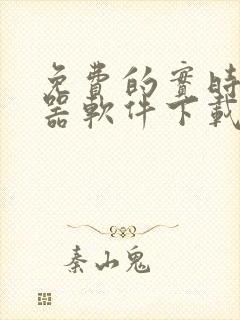 免費的實時
器軟件下載
秦山鬼